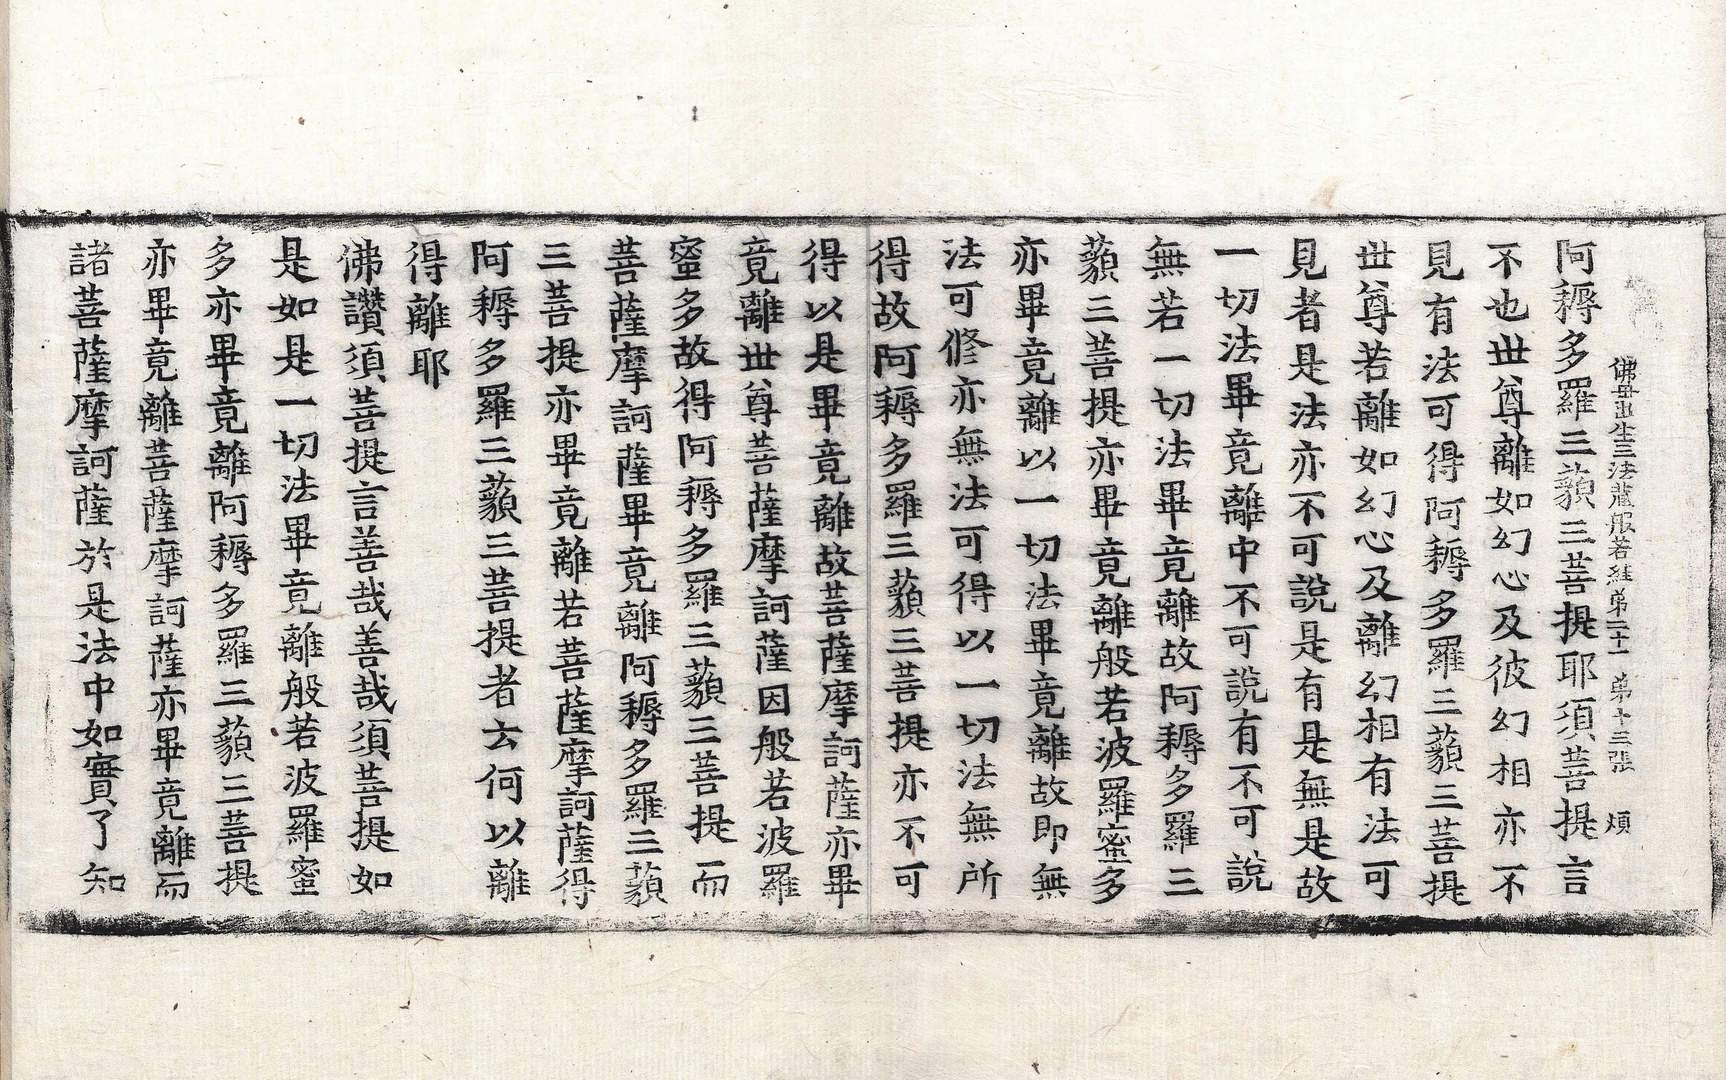 佛母出生三法藏般若經第二十一 第十三張 煩
阿耨多羅三藐三菩提耶須菩提言
不也世尊離如幻心及彼幻相亦不
見有法可得阿耨多羅三藐三菩提
世尊若離如幻心及離幻相有法可
見者是法亦不可說是有是無是故
一切法畢竟離中不可說有不可說
無若一切法畢竟離故阿耨多羅三
藐三菩提亦畢竟離般若波羅蜜多
亦畢竟離以一切法畢竟離故即無
法可修亦無法可得以一切法無所
得故阿耨多羅三藐三菩提亦不可
得以是畢竟離故菩薩摩訶薩亦畢
竟離世尊菩薩摩訶薩因般若波羅
蜜多故得阿耨多羅三藐三菩提而
菩薩摩訶薩畢竟離阿耨多羅三藐
三菩提亦畢竟離若菩薩摩訶薩得
阿耨多羅三藐三菩提者云何以離
得離耶
佛讚須菩提言善哉善哉須菩提如
是如是一切法畢竟離般若波羅蜜
多亦畢竟離阿耨多羅三藐三菩提
亦畢竟離菩薩摩訶薩亦畢竟離而
諸菩薩摩訶薩於是法中如實了知